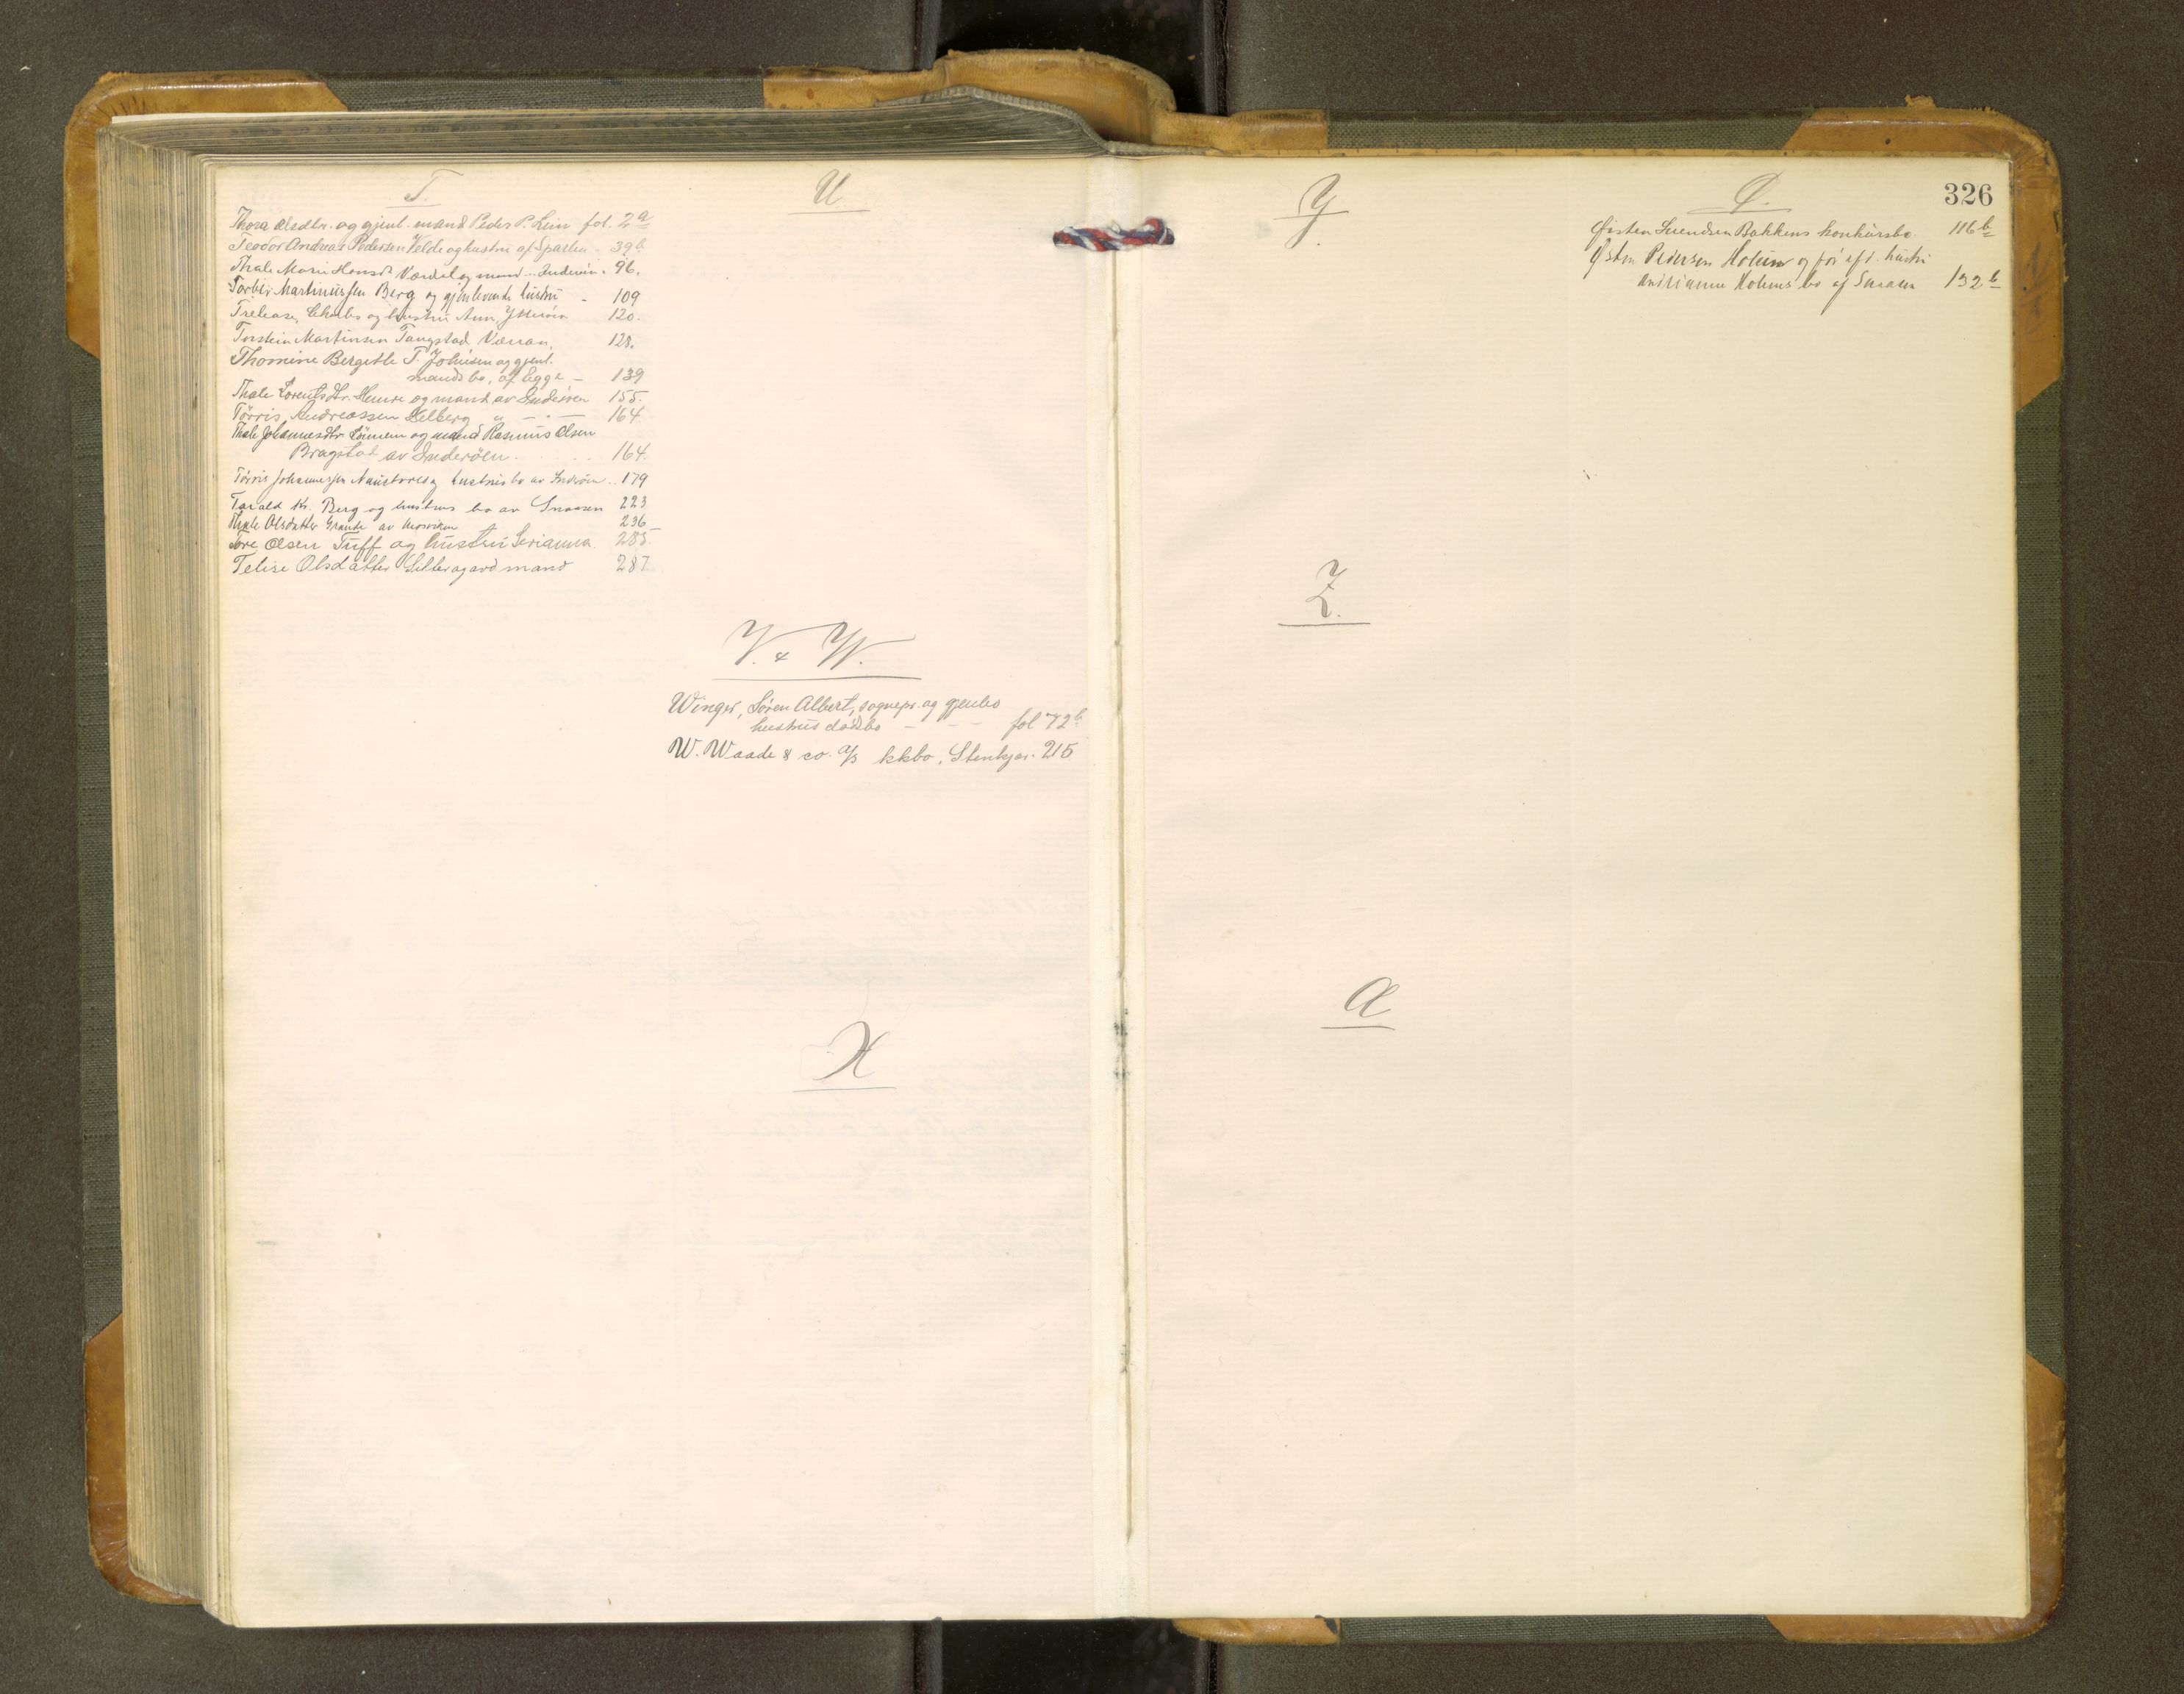 T.
Thora Olsdtr. og gjenl. mand Peder P. Lein fol. 2a
Teodor Andreas Pedersen Velde og hustru af Sparbu - 39b
Thale Marie Hansdt. Værdal og mand ... Inderøen. 96.
Torber Martinussen Berg og gjenlevende hustru - 109
Trelease, Charles og hustru Ann, Ytterøen 120.
Torstein Martinsen Tangstad Værran, 128.
Thomine Bergethe T. Johnsen og gjenl.
mands bo, af Egge - 139
Thale Lorentsdtr. og mand av Inderøen 155.
Tørris Andreassen Helberg " - " - 164
Thale Johannesdtr og mand Rasmus Olsen
Bragstad av Inderøen . . . . 164.
Tørris Johannessen og hustrus bo av Inderøen .. 179
Tarald Kr. Berg og hustrus bo av Snaasen 223
Thale Olsdatter Grande av Mosviken 236
Tore Olsen Tuff og hustru Serianna. 285
Telise Olsdatter og avd mand 287
U
V. & W.
Winger, Søren Albert, sognepr. og gjenlev
hustrus dødsbo - - - fol 72b
W. Waade & co. A/S kkbo, Stenkjær. 215
X
Y
Z.
Æ
326
Ø.
Østen Svendsen Bakkens konkursbo. 116b
Østen Pedersen Holum og før afd. hustru
Andrianna Holums bo af Snaasen 132b